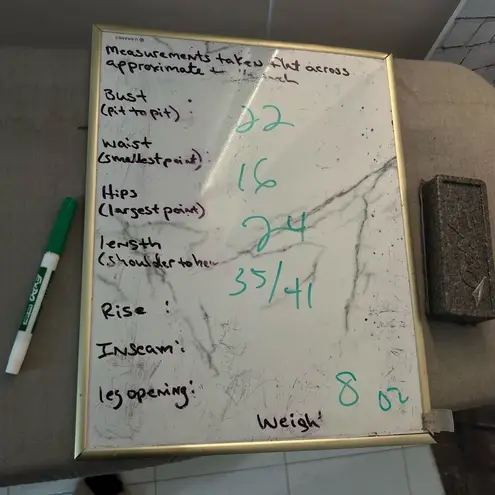 measurements taken flat across
approximate + inch
Bust :
(pit to pit) : 22
waist
(smallest point) : 16
Hips
(largest point) 24
length
(shoulder to hem 35/41
Rise :
Inseam :
leg opening :
8 oz
Weigh
EXPO